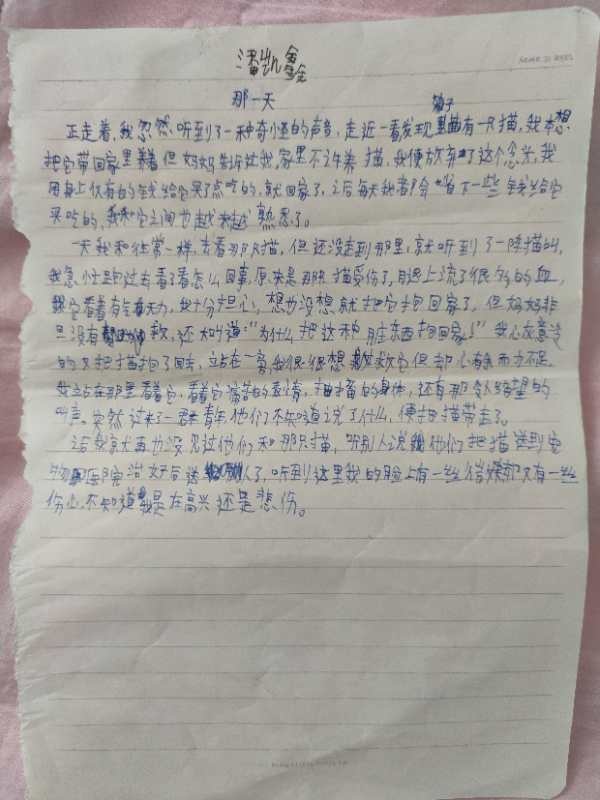 潘凯鑫
那一天
箱子
正走着,我忽然听到了一种奇怪的声音,走近一看发现里面有一只猫,我本想
把它带回家里养着但妈妈告诉过我,家里不允许养猫,我便放弃了这个念头,我
用身上仅有的钱给它买了点吃的,就回家了,之后每天我都会省下一些钱给它
买吃的,我和它之间也越来越熟悉了。
一天我和往常一样,去看那只猫,但还没走到那里,就听到了一阵猫叫,
我急忙跑过去看了看怎么回事,原来是那只猫受伤了,腿上流了很多的血,
我它看着有气无力,我十分担心,想也没想就把它抱回家了,但妈妈非
旦没有帮助 救,还大叫道:"为什么把这种脏东西抱回家!"我心灰意冷
的又把猫抱了回去,立站在一旁,我很很想救救它但却心有余而力不足,
我立站在那里看着它,看着它痛苦的表情,抽搐的身体,还有那令人绝望的
叫声。突然过来了一群青年,他们不知道说了什么,便把猫带走了。
之后我就再也没见过他们和那只猫,听别人说他们把猫送到宠
物医院治好后送 人了,听到这里我的脸上有一丝 却又有一丝
伤心,不知道我是在高兴还是悲伤。